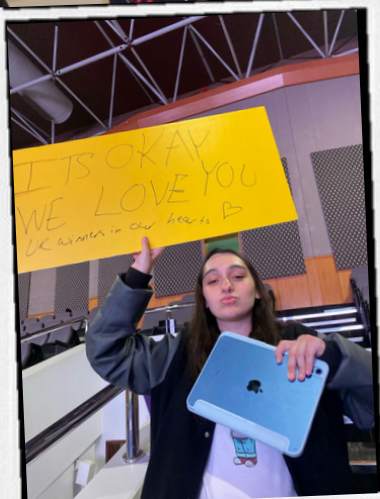 ITS OKAY
WE LOVE YOU
UR winners in our hearts ♡